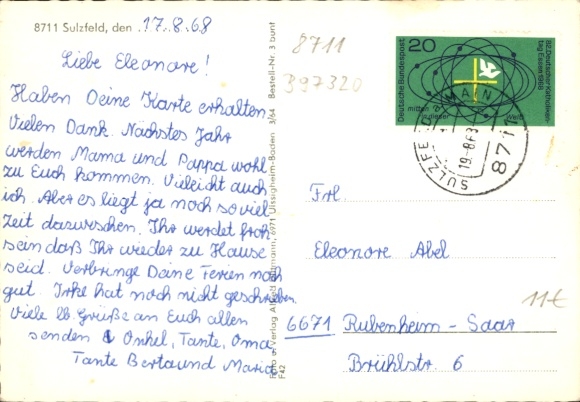 8711 Sulzfeld, den 17.8.68
Liebe Eleonore!
Haben Deine Karte erhalten.
Vielen Dank. Nächstes Jahr
werden Mama und Pappa wohl
zu Euch kommen. Vieleicht auch
ich. Aber es liegt ja noch so viel
Zeit dazwischen. Ihr werdet froh
sein daß Ihr wieder zu Hause
seid. Verbringe Deine Ferien noch
gut. Inke hat noch nicht geschrieben
Viele lb. Grüße an Euch allen
senden Onkel, Tante, Oma
Tante Berta und Maria
Bestell-Nr. 3 bunt
3/64
6971 Uissigheim-Baden
Foto u. Verlag
F42
8711
397320
Deutsche Bundespost
20
82. Deutscher Katholiken-
tag Essen 1968
mitten in dieser Welt
SULZFELD MAIN
8711
Frl.
Eleonore Abel
11€
6671 Rubenheim - Saar
Brühlstr. 6